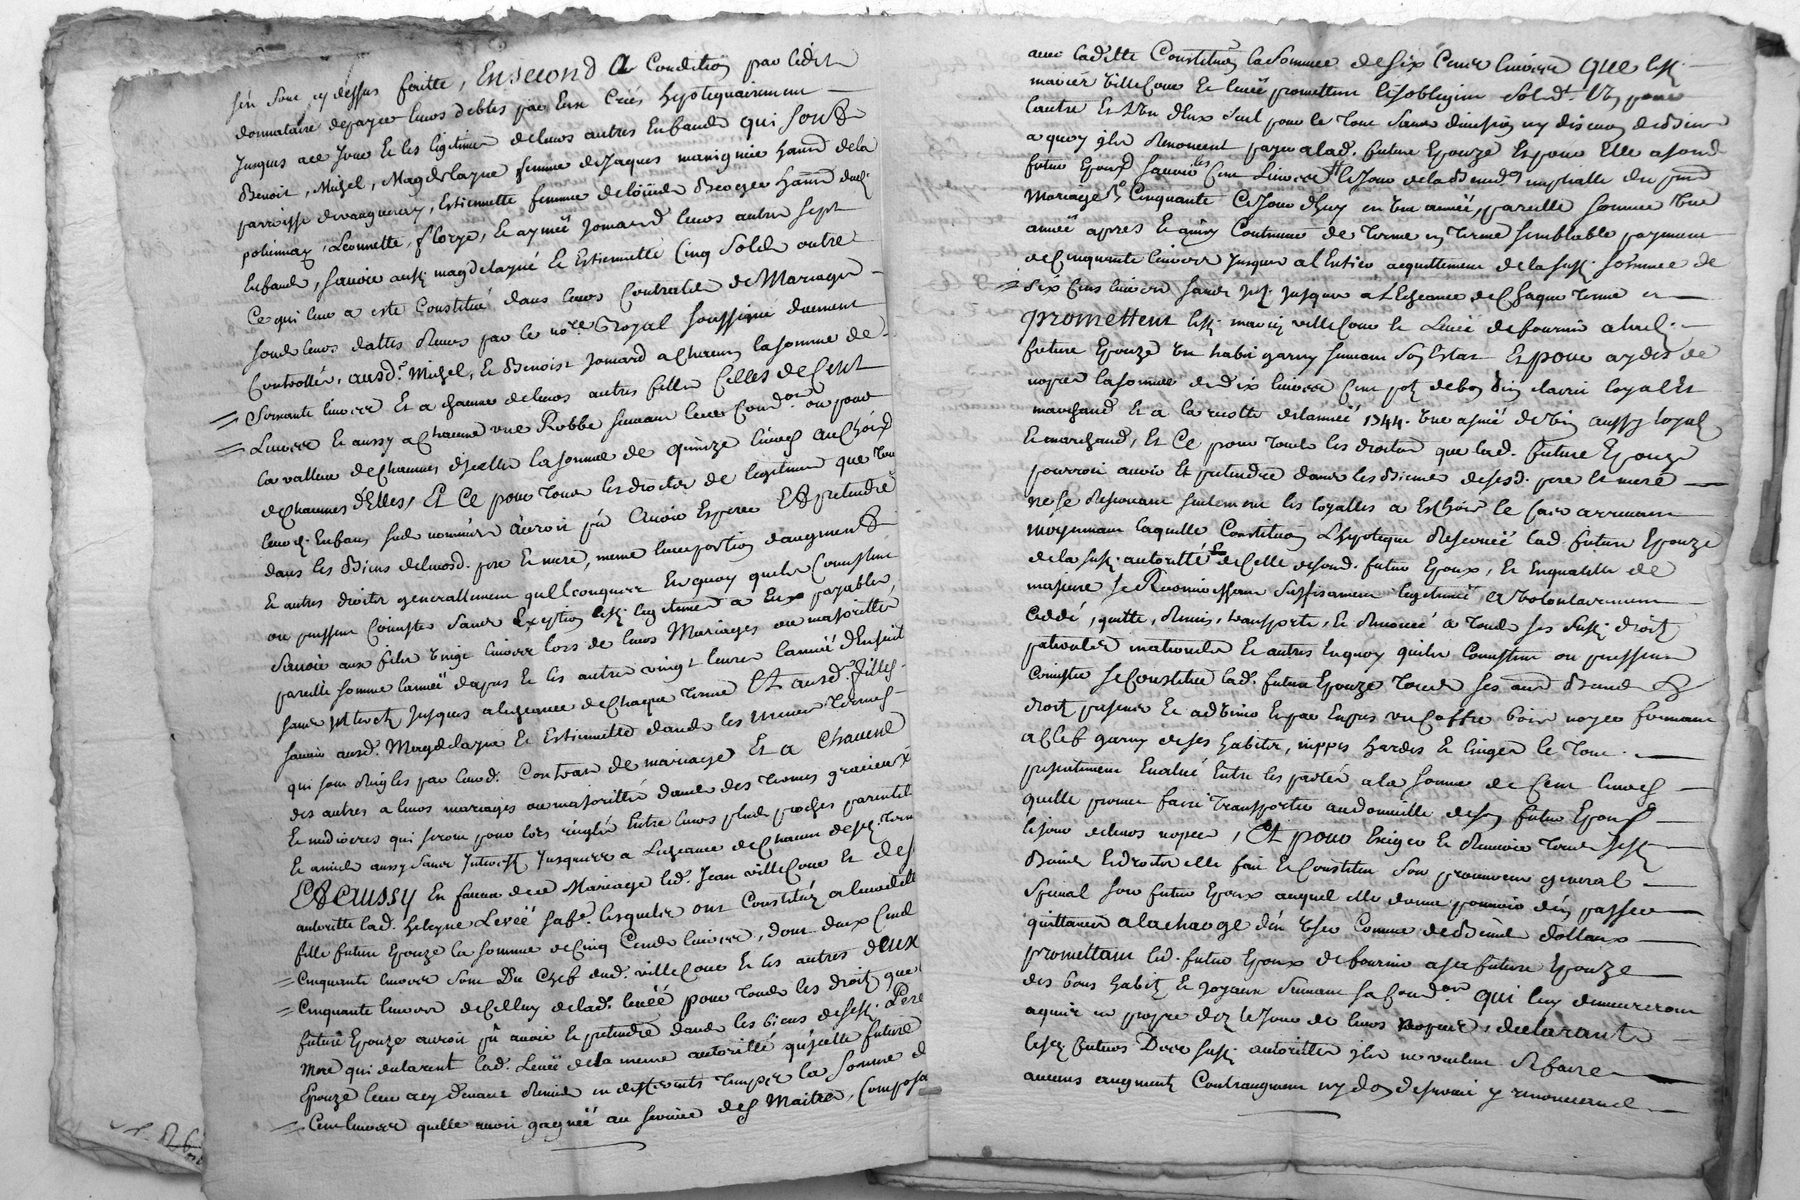 sin sont cy dessus faitte, En second A Condition par ledit
donnataire de payer leurs debtes par Eux Crées hypotequairement
Jusques a ce Jour Et les legitimes de leurs autres Enfands qui sont
Benoit, Michel, Magdelayne femme de Jaques manignie habitt de la
parroisse de vaugneray, Estiennette femme de
polionnay, Leonnette, florye, Et aymée Jomard leurs autres sept
Enfands, scavoir auxs. magdelayne Et Estiennette Cinq Solds outre
Ce qui leur a esté Constitué dans leurs Contracts de Mariages
sous leurs dattes Reçus par le nore Royal soussigné duement
Controllés, ausd. Michel, Et Benoist Jomard a Chacun la somme de
Soixante livres Et a chacune de leurs autres filles Celles de Cent
Livres Et aussy a Chacune une Robbe suivant leur Condon ou pour
la valleur de Chacunes d'icelles la somme de quinze livres au Choix
de Chacunes d'Elles, Et Ce pour Tous les droits de legitimes que
leursd. Enfans sus nommés auroit pû Avoir Esperer Et pretendre
dans les Biens de leursd. pere Et mere, meme leur portion d'augment &
Et autres droits generallement quelconques En quoy qu'ils Consistent
ou puissent Consister sans Exeption lesd. legitimes a Eux payables,
Scavoir aux fils vingt livres lors de leurs Mariages ou majorittés
pareille somme l'année d'apres Et les autres vingt livres l'année d'Ensuitte
sans Interests Jusques a l'escheance de Chaque terme Et ausd. filles
scavoir ausd. Magdelayne Et Estiennette dans les memes Termes
qui sont Reiglés par leursd. Contrats de mariages Et a Chacune
des autres a leurs mariages ou majorittés dans des termes gracieux
Et mediocres qui seront pour lors reiglés Entre leurs plus proches parents
Et amies aussy sans Interest Jusques a L'escheance de Chacun desd. termes
Et aussy En faveur de ce Mariage led. Jean villeCour Et de s
autoritté lad. heleyne Levéé sa fe. lesquels ont Constitué a leurdite
fille future Epouze la somme de Cinq Cends livres, dont deux Cend
Cinquante livres sont Du Chef dud. villeCour Et les autres deux
Cinquante livres de Celluy de lad. levéé pour Tous les droits que
future Epouze auroit pû avoir Et pretendre dans les biens desesd. pere
mere qui declarent lad. Levéé de la meme autoritté qu'icelle future
Epouze leur a cy devant Remis en differents temps la somme d
Cent livres qu'elle avoit gagnéé au service des Maitres, Composa
avec lad'itte Constitution la somme de six Cents livres que lesd.
mariés VilleCour Et levéé promettent Et s'obligent solidt. l'Un pour
l'autre Et l'Un d'Eux seul pour le Tout sans division ny discution de Biens
a quoy ils Renoncent payer a lad. future Epouze Et pour Elle a sond
futur Epoux scavoir Cent Livres le Jour de la Benedon nuptialle du present
Mariage & Cinquante Ce Jourd'huy en Une année, pareille somme Une
année apres Et ainsy Continuer de Terme en Terme semblable payement
de Cinquante livres Jusques a l'Entier acquittement de la susd. somme de
Six Cens livres sans Int. Jusques a L'Escheance de Chaque Terme
promettent lesd. mariés villeCour Et Levéé de fournir a lad.
future Epouze un habit garny suivant son Estat Et pour aydes de
nopces la somme de dix livres Cent pot de bon Vin clairet loyal Et
marchand Et a la recolte de l'année 1744. une asnée de Vin aussy loyal
Et marchand, Et Ce pour Tous les droits que lad. future Epouze
pourroit avoir Et pretendre dans les Biens desesd. pere Et mere
ne se Reservant seulement les loyalles a Eschoir le Cas arrivant
moyennant laquelle Constitution L'hypoteque Reservéé lad. future Epouze
de la susd. autoritté & de Celle de sond. futur Epoux, Et En qualité de
majeure se Reconnoissant suffisament legitiméé a Volontairement
Ceddé, quitté, Remis, transporté, Et Renoncé a Tous ses susd. droits
paternels maternels Et autres En quoy qu'ils Consistent ou puissent
Consister se Constitue lad. future Epouze Tous ses autres Biens &
droits presents Et advenir Et par Expres un Coffre bois noyer fermant
a Clef garny de ses habits, nippes hardes Et linges le Tout
presentement Evalué Entre les parties a la somme de Cent livres
qu'elle promet faire transporter au domicille de son futur Epoux
le jour de leurs nopces, Et pour Exiger Et Recevoir Tous sesd.
Biens Et droits elle fait Et Constitue Son procureur general
special son futur Epoux auquel elle donne pouvoir d'en passer
quittances a la charge d'en User Comme de Biens dottaux
promettant led. futur Epoux de fournir a sa future Epouze
des bons habits Et joyaux suivant sa Condon qui luy demeureront
acquis en propre dez le Jour de leurs nopces, declarants
lesd. futurs Des susd. autorittés qu'ils ne veulent se faire
aucuns augments Contraugments ny don de survie y renoncent